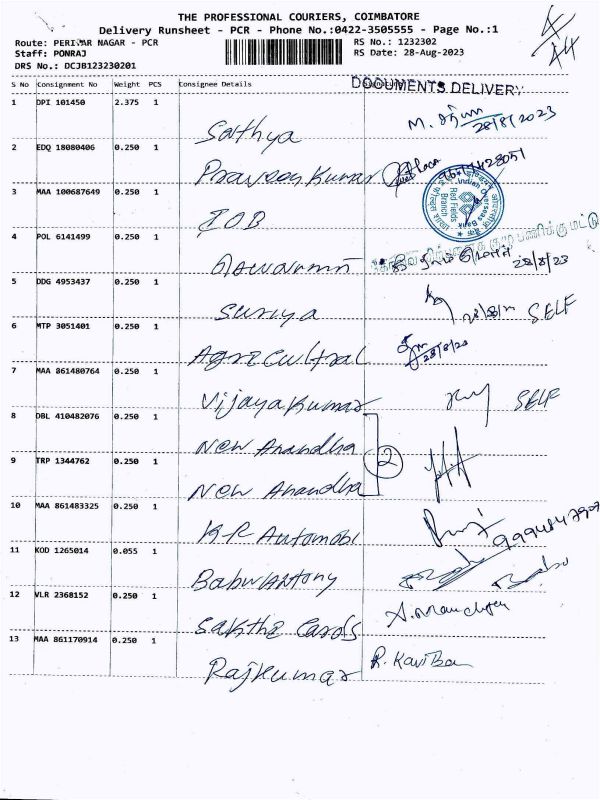 4/44
THE PROFESSIONAL COURIERS, COIMBATORE
Delivery Runsheet - PCR - Phone No.:0422-3505555 - Page No.:1
Route: PERIYAR NAGAR - PCR RS No.: 1232302
Staff: PONRAJ RS Date: 28-Aug-2023
DRS No.: DCJB123230201
S No Consignment No Weight PCS Consignee Details
DOCUMENTS DELIVERY
1 DPI 101450 2.375 1 Sathya 28/8/2023
2 EDQ 18080406 0.250 1 Praveen Kumar
3 MAA 100687649 0.250 1 IOB Indian Overseas Bank Red Fields Branch
4 POL 6141499 0.250 1 28/8/23
5 DDG 4953437 0.250 1 Suriya SELF
6 MTP 3051401 0.250 1 Agricultral 28/8/23
7 MAA 861480764 0.250 1 Vijayakumar SELF
8 DBL 410482076 0.250 1 New Anandha
2
9 TRP 1344762 0.250 1 New Anandha
10 MAA 861483325 0.250 1 KR Automobi
11 KOD 1265014 0.055 1 Babu Antony Babu
12 VLR 2368152 0.250 1 Sakthi Cards
13 MAA 861170914 0.250 1 Rajkumar R. Kavitha